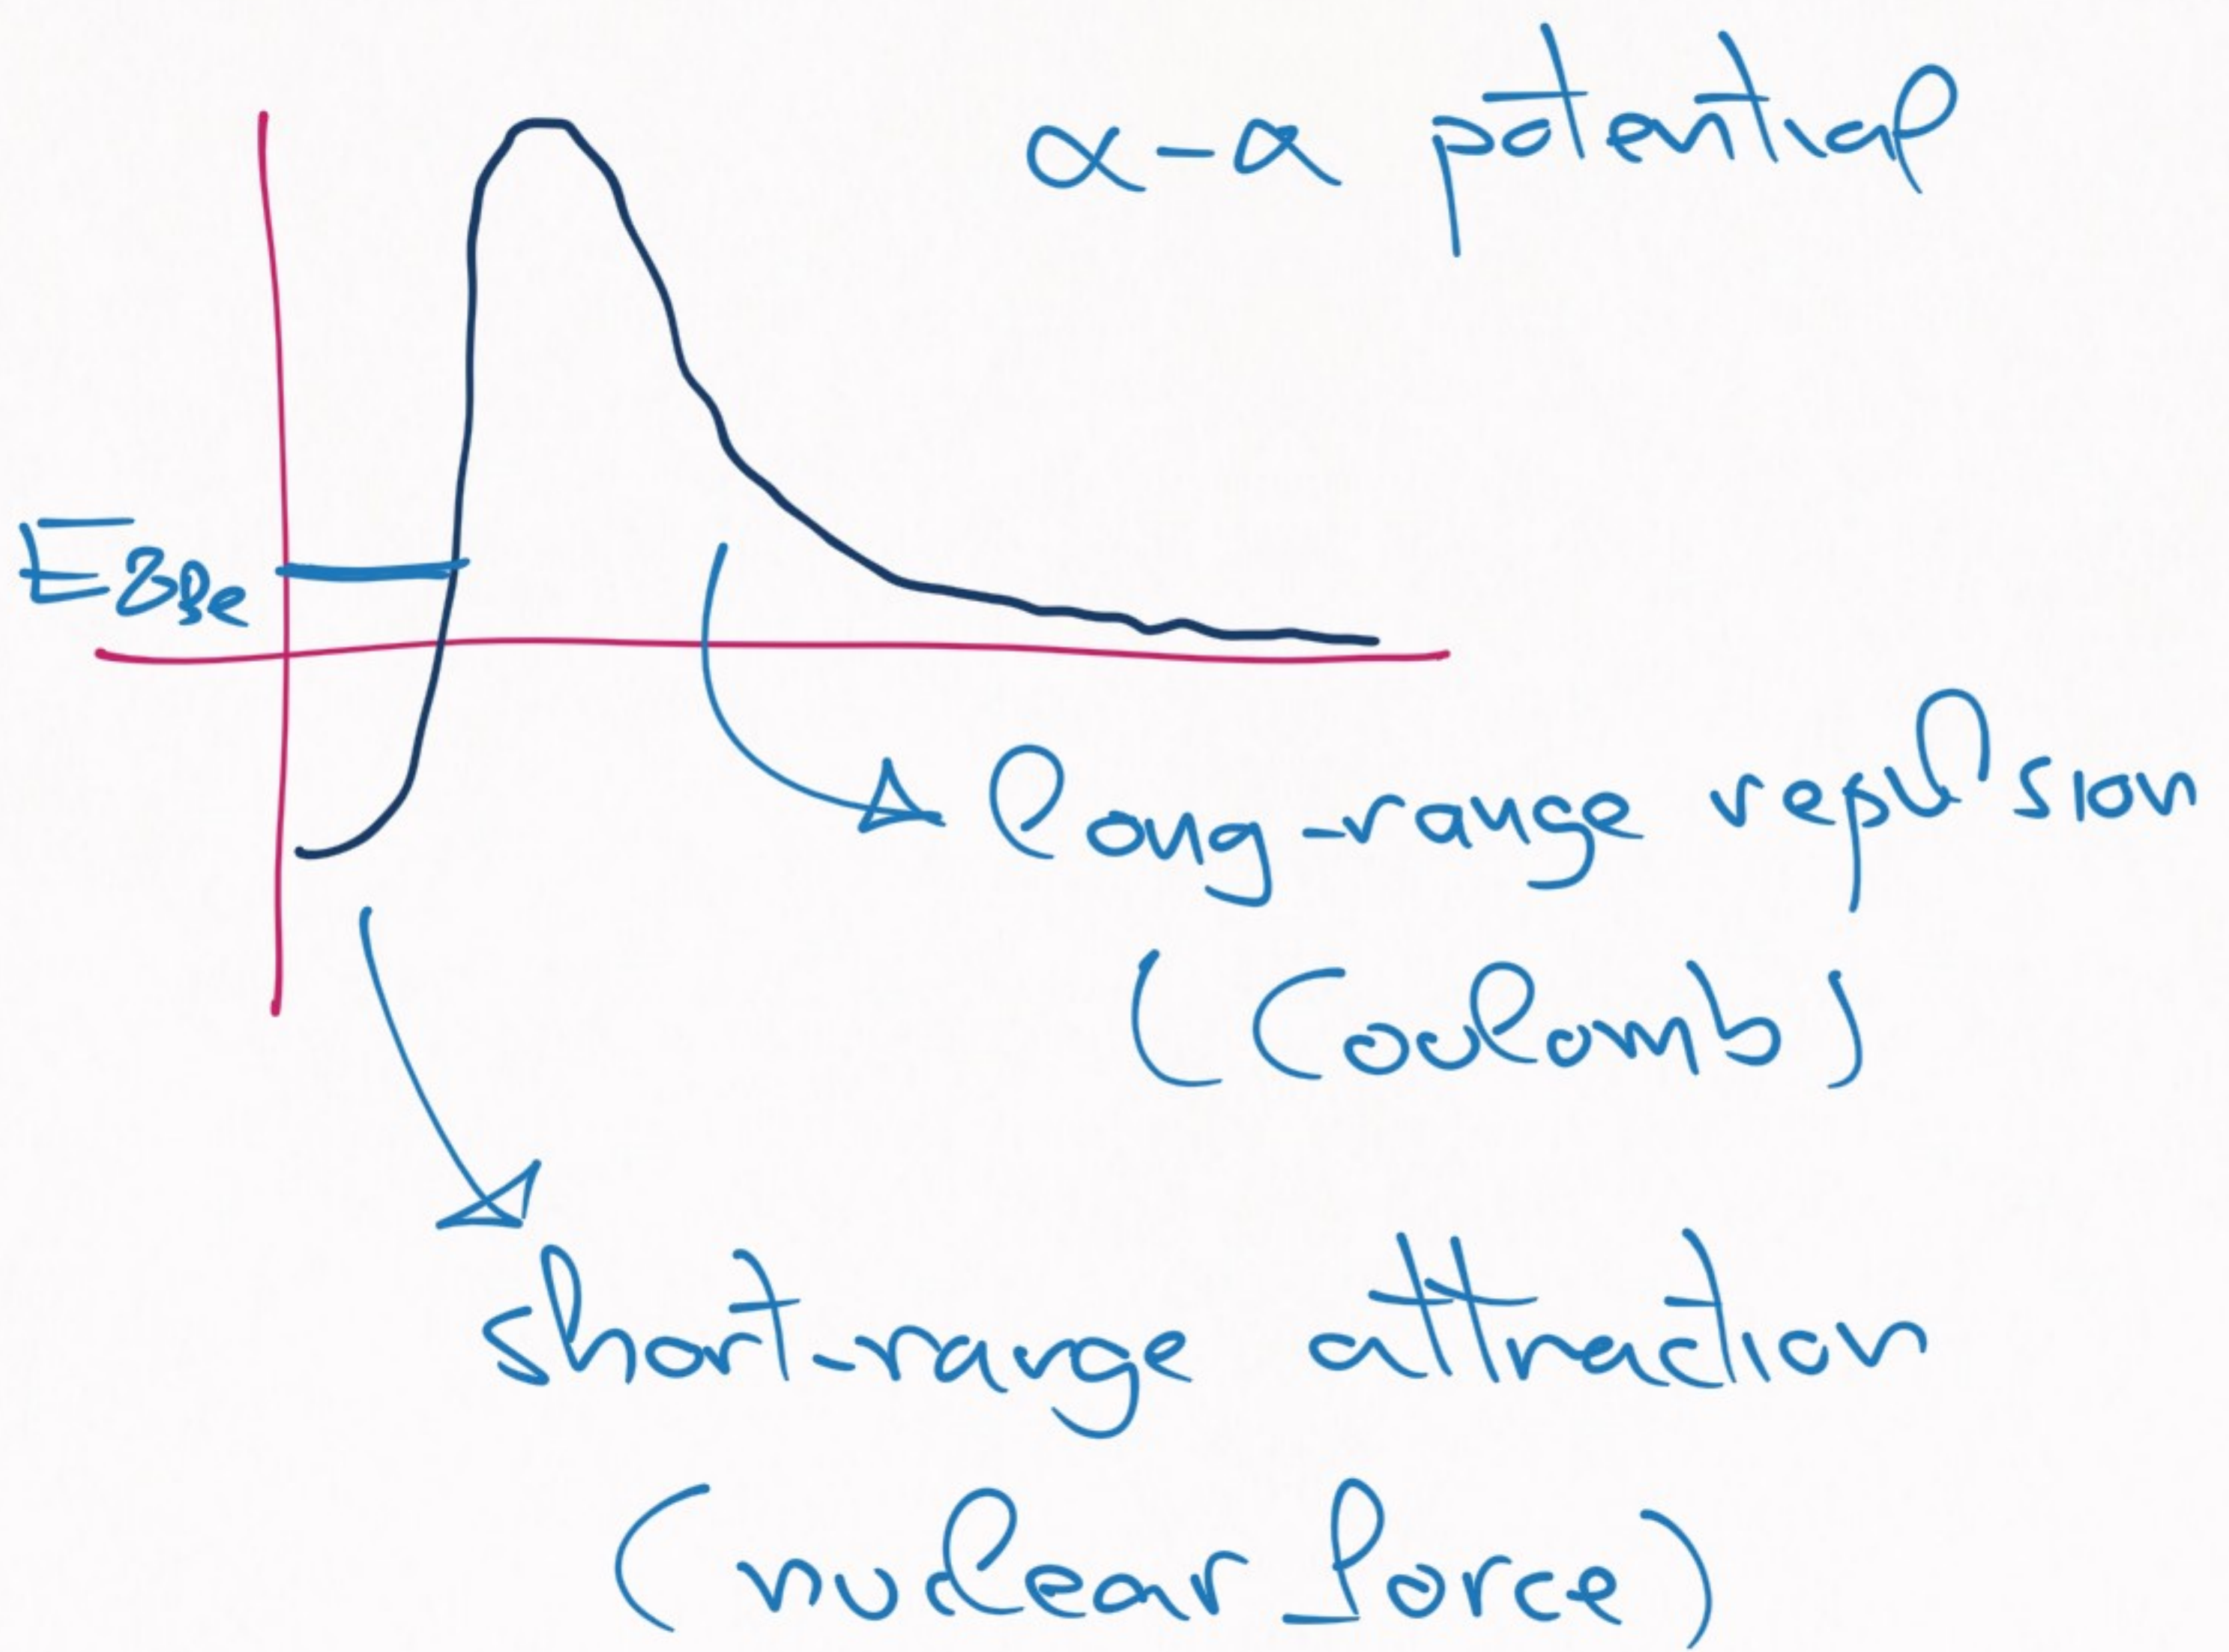 α-α potential
E8Be
long-range repulsion
(Coulomb)
short-range attraction
(nuclear force)